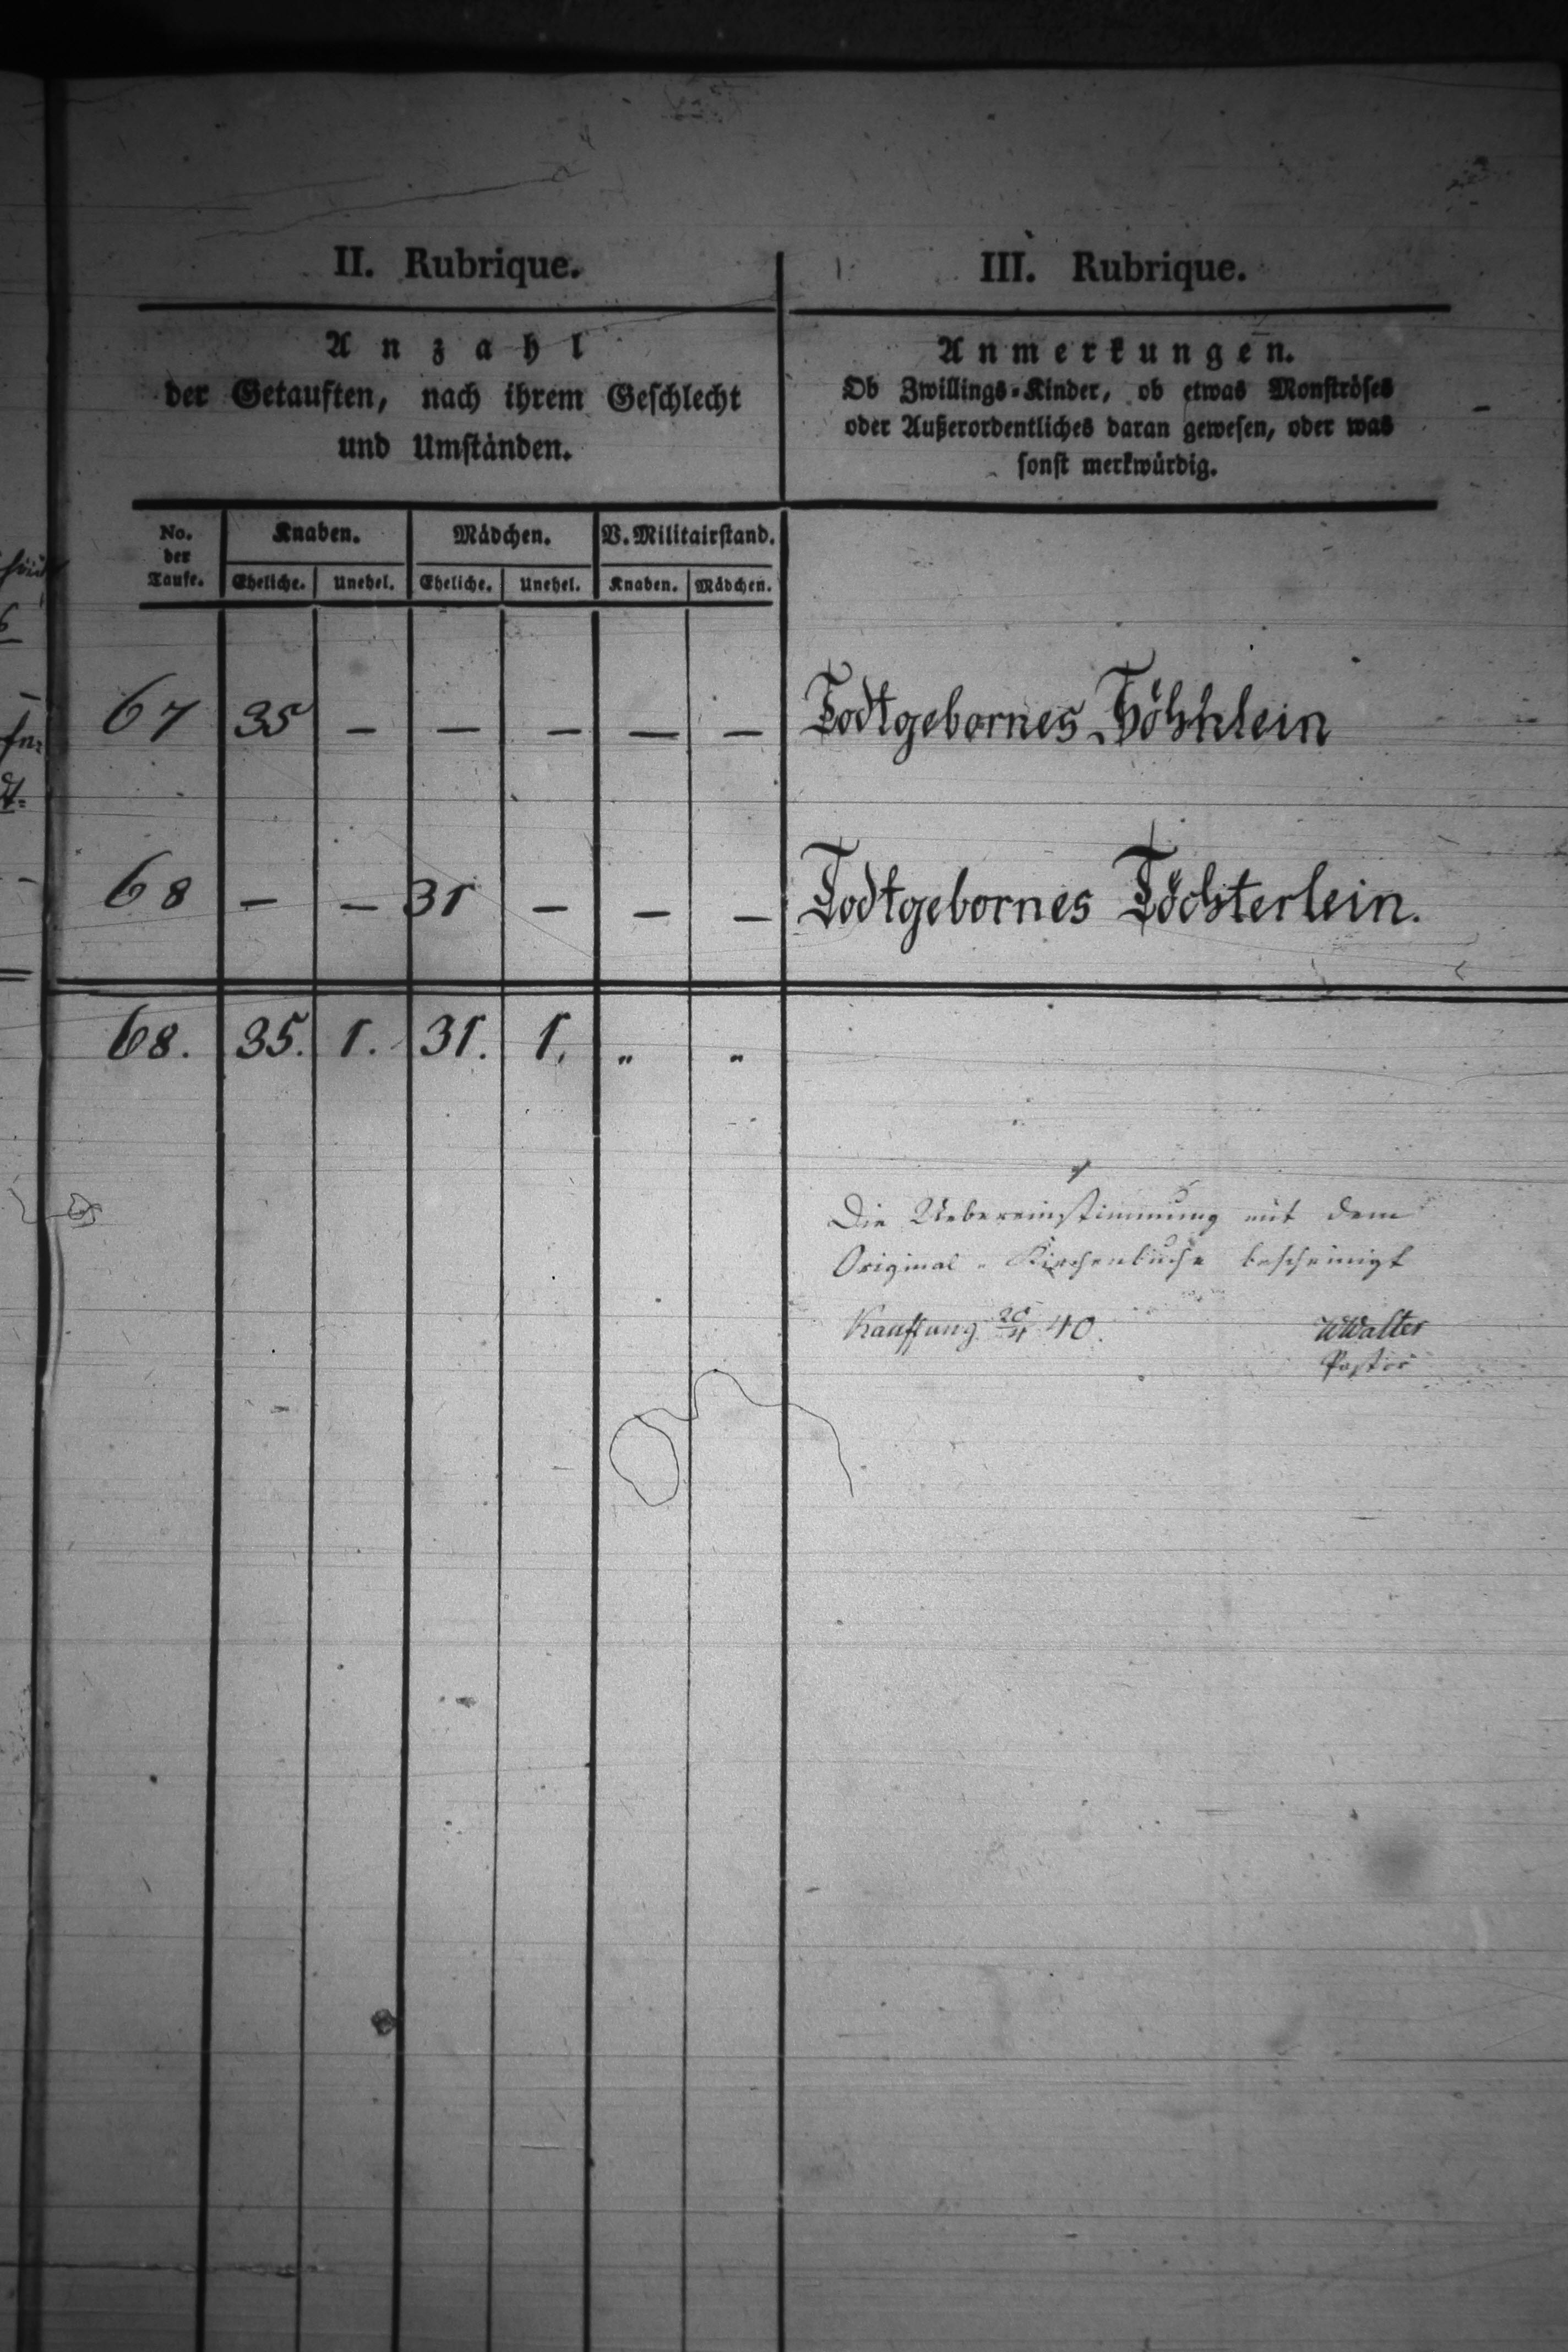 II. Rubrique.
Anzahl
der Getauften, nach ihrem Geschlecht
und Umständen.
III. Rubrique.
Anmerkungen.
Ob Zwillings-Kinder, ob etwas Monströses
oder Außerordentliches daran gewesen, oder was
sonst merkwürdig.
No. der Taufe.
Knaben. Mädchen. V. Militairstand.
Eheliche. Unehel. Eheliche. Unehel. Knaben. Mädchen.
67 35 – – – – – Todtgebornes Söhnlein
68 – – 31 – – – Todtgebornes Töchterlein.
68. 35. 1. 31. 1. „ „
Die Uebereinstimmung mit dem
Original-Kirchenbuche bescheinigt
Kauffung 20/4 40. Walter
Pastor